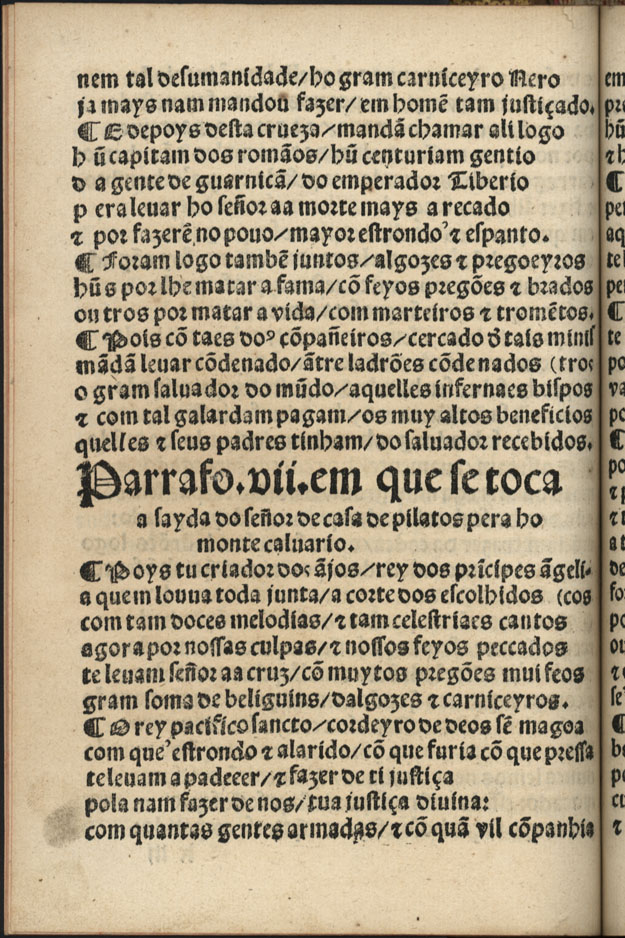 nem tal desumanidade/ho gram carniceyro Nero
ja mays nam mandou fazer/em homẽ tam justiçado.
¶ E depoys desta crueza/mandã chamar ali logo
h ũ capitam dos romãos/hũ centuriam gentio
d a gente de guarnicã/do emperador Tiberio
p era leuar ho señor aa morte mays a recado
⁊ por fazerẽ no pouo/mayor estrondo ⁊ espanto.
¶ Foram logo tambẽ juntos/algozes ⁊ pregoeyros
hũs por lhe matar a fama/cõ feyos pregões ⁊ brados
ou tros por matar a vida/com marteiros ⁊ tromẽtos.
¶ Pois cõ taes doꝰ cõpañeiros/cercado d̃ tais minis
mãdã leuar cõdenado/ãtre ladrões cõde nados (tros
o gram saluador do mũdo/aquelles infernaes bispos
⁊ com tal galardam pagam/os muy altos beneficios
quelles ⁊ seus padres tinham/do saluador recebidos.
Parrafo.vii.em que se toca
a sayda do señor de casa de pilatos pera ho
monte caluario.
¶ Poys tu criador dos ãjos/rey dos prĩcipes ãgeli-
a quem louua toda junta/a corte dos escolhidos (cos
com tam doces melodias/⁊ tam celestriaes cantos
agora por nossas culpas/⁊ nossos feyos peccados
te leuam señor aa cruz/cõ muytos pregões mui feos
gram soma de beliguins/dalgozes ⁊ carniceyros.
¶ O rey pacifico sancto/cordeyro de deos sẽ magoa
com que estrondo ⁊ alarido/cõ que furia cõ que pressa
te leuam a padecer/⁊ fazer de ti justiça
pola nam fazer de nos/tua justiça diuina:
com quantas gentes armadas/⁊ cõ quã vil cõpanhia